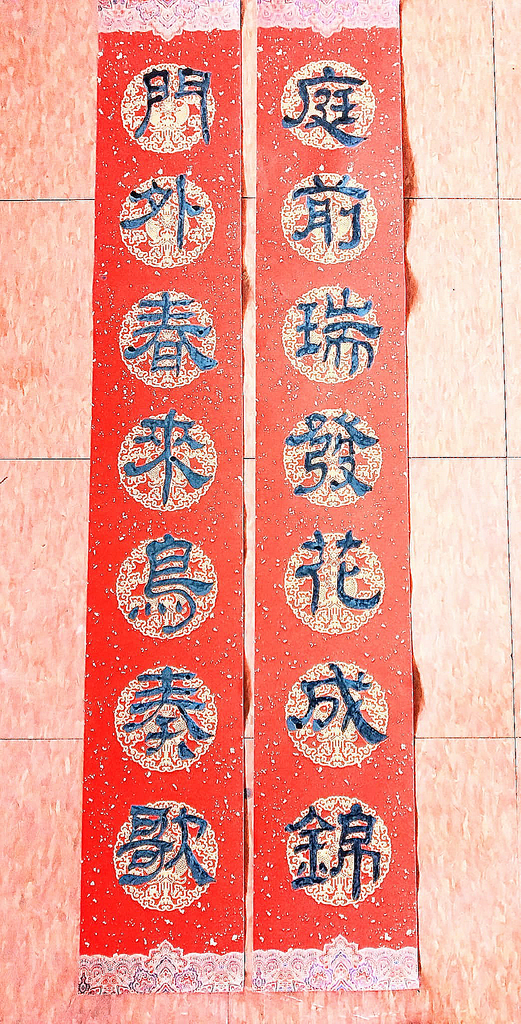 庭前瑞發花成錦
門外春來鳥奏歌